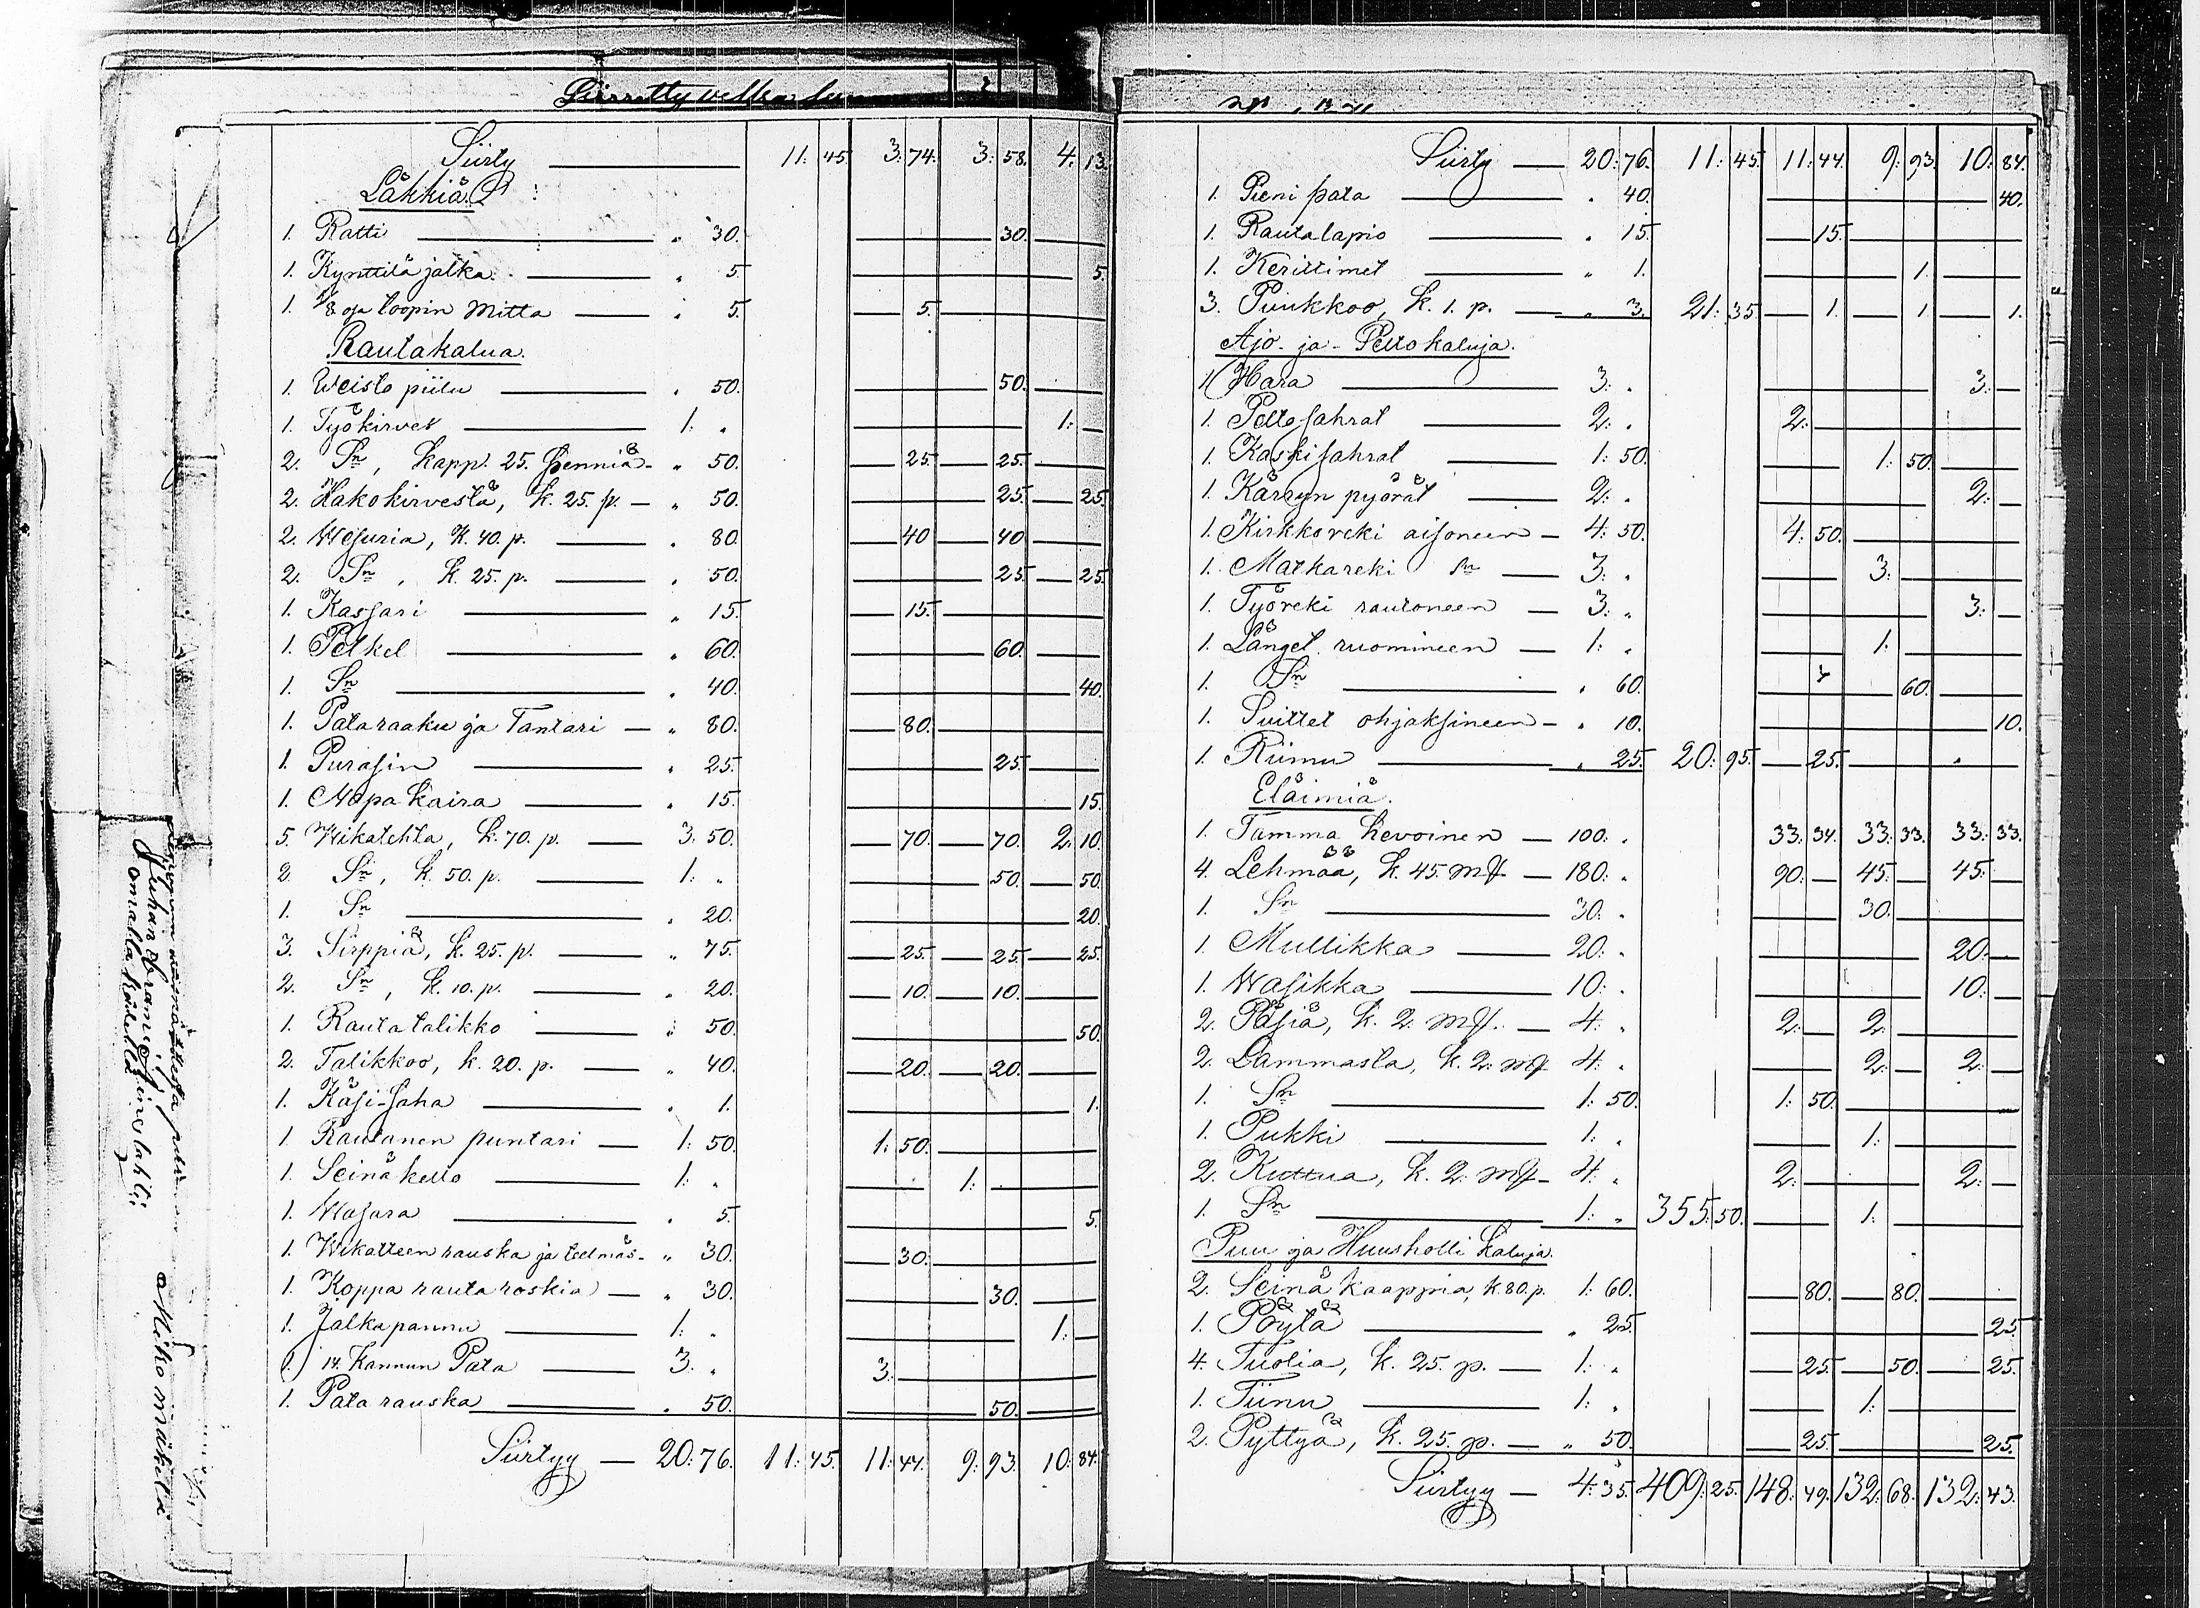 Siirretty velka
Siirty — 11: 45. 3: 74. 3: 58. 4: 13.
Läkkiä
1. Ratti — „ 30. — 30. —
1. Kynttilä jalka — „ 5. — 5.
1. 1/8 osa toopin mitta — „ 5. — 5. —
Rautakalua.
1. Weisto piilu — „ 50. — 50. —
1. Työkirves — 1: „ — 1: —
2. Sn, kapp. 25. penniä — „ 50. — 25. — 25. —
2. Hakokirvestä, k. 25. p. — „ 50. — 25. — 25.
2. Wesuria, k. 40. p. — „ 80. — 40 — 40 —
2. Sn, k. 25. p. — „ 50. — 25. — 25.
1. Kassari — „ 15. — 15. —
1. Petkel — „ 60. — 60. —
1. Sn — „ 40. — 40.
1. Pataraaku ja Tantari — „ 80. — 80. —
1. Purasin — „ 25. — 25. —
1. Napa kaira — „ 15. — 15.
5. Wikatehta, k. 70. p. — 3: 50. — 70. — 70. 2: 10.
2. Sn, k. 50. p. — 1: „ — 50. — 50.
1. Sn — „ 20. — 20.
3. Sirppiä, k. 25. p. — „ 75. — 25. — 25. — 25.
2. Sn, k. 10. p. — „ 20. — 10. — 10. —
1. Rauta talikko — „ 50. — 50.
2. Talikkoo, k. 20. p. — „ 40. — 20. — 20. —
1. Käsi-saha — „ 1. — 1.
1. Rautanen puntari — 1: 50. 1: 50. —
1. Seinä kello — 1: „ — 1: —
1. Wasara — „ 5. — 5.
1. Wikatteen rauska ja teelmäs — „ 30. — 30. —
1. Koppa rauta roskia — „ 30. — 30. —
1. Jalka pannu — 1: „ — 1: —
1. 14. kannun Pata — 3: „ 3: —
1. Pata rauska — „ 50. — 50. —
Siirtyy — 20: 76. 11: 45. 11: 44. 9: 93. 10: 84.
Juhan Abramin
omalla kädellä
Mikomäkelä
Siirty — 20: 76. 11: 45. 11: 44. 9: 93. 10: 84.
1. Pieni pata — „ 40. — 40.
1. Rautalapio — „ 15. — 15. —
1. Kerittimet — „ 1. — 1. —
3. Puukkoo, k. 1. p. — „ 3. 21: 35. — 1. — 1. — 1.
Ajo- ja- Peltokaluja.
1. Hara — 3: „ — 3: —
1. Peltosahrat — 2: „ 2: —
1. Kaskisahrat — 1: 50. — 1: 50. —
1. Kärryn pyörät — 2: „ — 2: —
1. Kirkkoreki aisoneen — 4: 50. 4: 50. —
1. Matkareki Sn — 3: „ — 3: —
1. Työreki rautoneen — 3: „ — 3: —
1. Länget ruomineen — 1: „ — 1: —
1. Sn — „ 60. — 60. —
1. Suittet ohjaksineen — „ 10. — 10.
1. Riimu — „ 25. 20: 95. — 25. —
Eläimiä.
1. Tamma hevoinen — 100: „ 33: 34. 33: 33. 33: 33.
4. Lehmää, k. 45. mf — 180: „ 90: — 45: — 45: —
1. Sn — 30: „ — 30: —
1. Mullikka — 20: „ — 20: —
1. Wasikka — 10: „ — 10: —
2. Päsiä, k. 2. mf. — 4: „ 2: — 2: —
2. Lammasta, k. 2. mf 4: „ — 2: — 2: —
1. Sn — 1: 50. 1: 50. —
1. Pukki — 1: „ — 1: —
2. Kuttua, k. 2. mf — 4: „ 2: — 2: —
1. Sn — 1: „ 355: 50. — 1: —
Puu ja Huusholli kaluja.
2. Seinä kaappia, k. 80. p. 1: 60. — 80. — 80. —
1. Pöytä — „ 25. — 25.
4. Tuolia, k. 25. p. — 1: „ — 25. — 50. — 25.
1. Tiinu — 1: „ — 1: —
2. Pyttyä, k. 25. p. — „ 50. — 25. — 25.
Siirtyy — 4: 35. 409: 25. 148: 49. 132: 68. 132: 43.